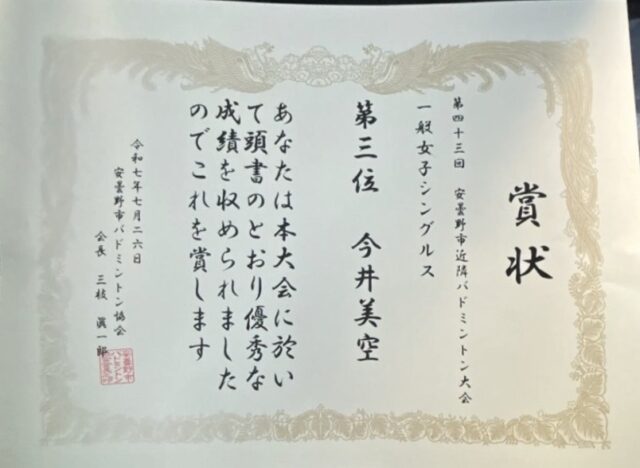 賞状
第四十三回 安曇野市近隣バドミントン大会
一般女子シングルス
第三位 今井美空
あなたは本大会に於い
て頭書のとおり優秀な
成績を収められました
のでこれを賞します
令和七年七月二六日
安曇野市バドミントン協会
会長 三枝 眞一郎